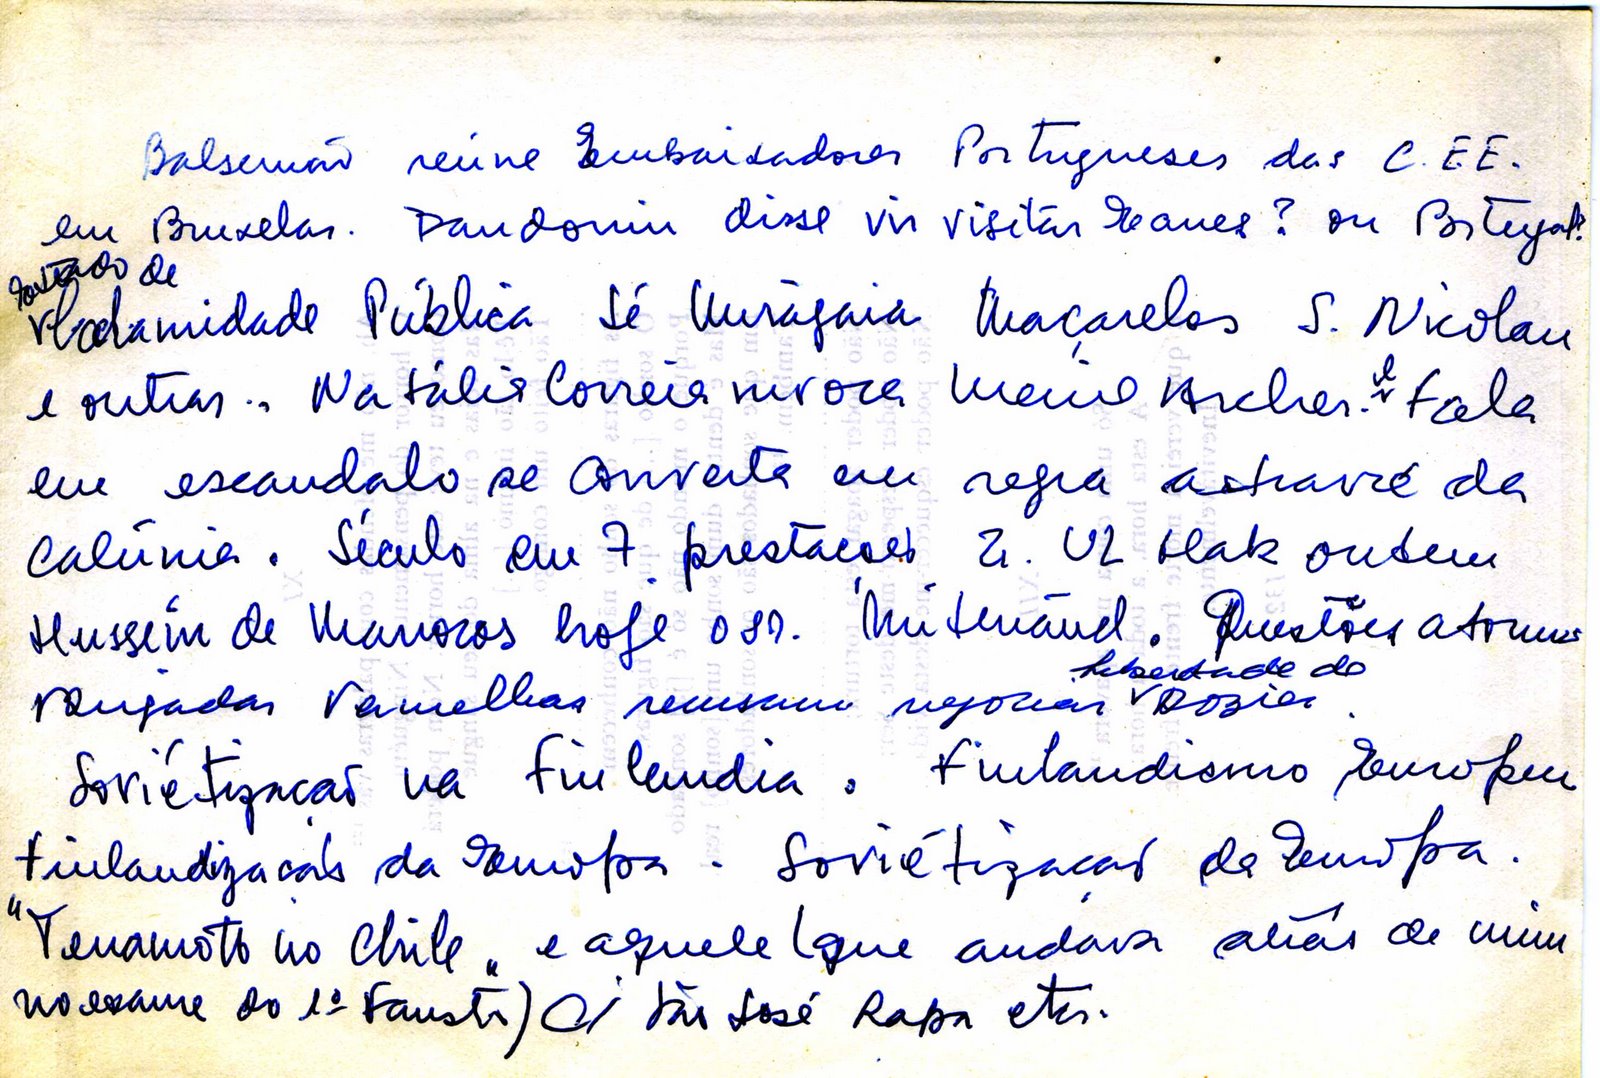 Balsemão reúne Embaixadores Portugueses das C.E.E.
em Bruxelas. disse vir visitar Eanes? ou Portugal?
Estado de
Calamidade Pública Sé Miragaia Maçarelos S. Nicolau
e outras.. Natália Correia invoca Archer. e Fala
em escandalo se converta em regra através da
Calúnia. Século em 7 prestações Hak ontem
Hussein de Marrocos hoje Miterrand. Questões
Brigadas Vermelhas recusam negociar
libertade de
Dozier.
Soviétização na Finlandia. Finlandismo Europeu
Finlandização da Europa. Soviétização da Europa.
"Terramoto no Chile" e aquele (que andava atrás de mim
no exame do 1º Fausto) São José Rapa etc.